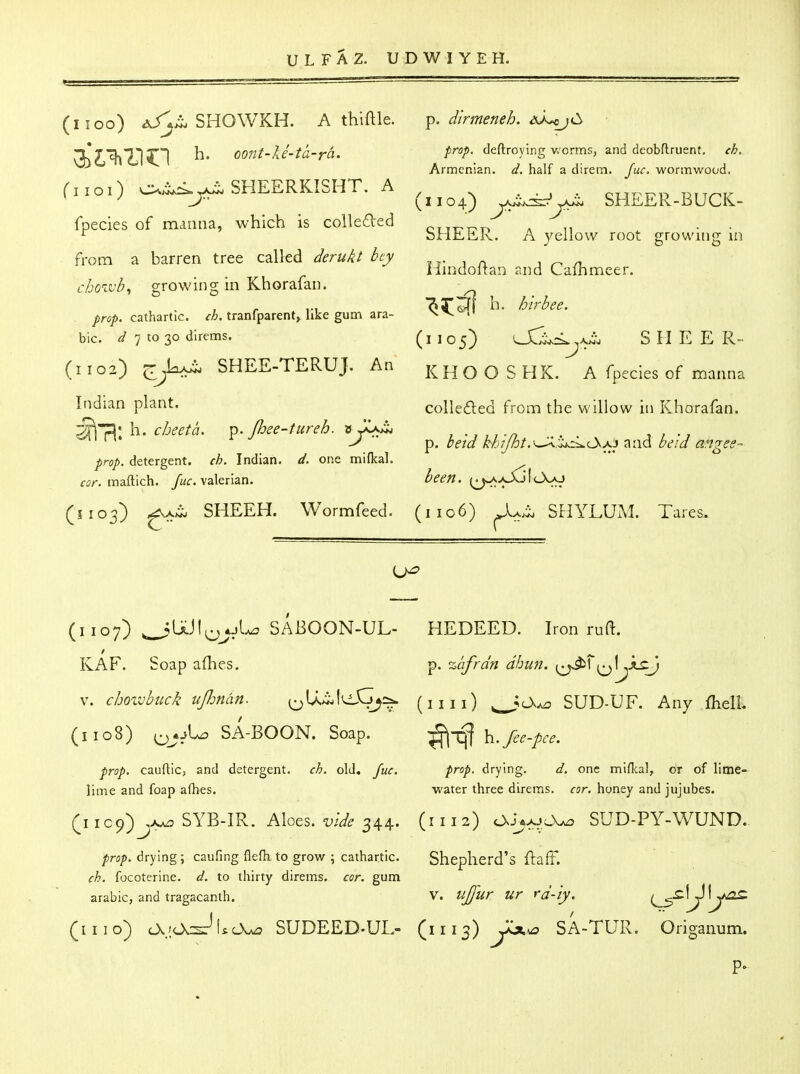 ULFÁZ. UDWIYEH.
(1100) شوكه SHOWKH. A thiſtle.
h. oont-ké-tá-rá.
(1101) شيرخشت SHEERKISHT. A
ſpecies of manna, which is collected
from a barren tree called derukt bey
chowb, growing in Khoraſan.
prop. cathartic. ch. tranſparent, like gum ara-
bic. d 7 to 30 direms.
(1102) شيطرج SHEE-TERUJ. An
Indian plant.
h. cheetá. p. ſhee-tureh. شيتره
prop. detergent. ch. Indian. d. one miſkal.
cor. maſtich. ſuc. valerian.
(1103) شيح SHEEH. Wormſeed.
p. dirmeneh. درمنه
prop. deſtroying worms, and deobſtruent. ch.
Armenian. d. half a direm. ſuc. wormwood.
(1104) SHEER-BUCK-
SHEER. A yellow root growing in
Hindoſtan and Caſhmeer.
h. hirbee.
(1105) شيرخشك SHEER-
KHOOSHK. A ſpecies of manna
collected from the willow in Khoraſan.
p. beid khiſht. بيدخشت and beid angee-
been. بيد انكبين
(1106) شيلم SHYLUM. Tares.
ص
(1107) صابون القاف SABOON-UL-
KAF. Soap aſhes.
v. chowbuck uſhnán. چوبك اشنان
(1108) صابون SA-BOON. Soap.
prop. cauſtic, and detergent. ch. old. ſuc.
lime and ſoap aſhes.
(1109) صبر SYB-IR. Aloes. vide 344.
prop. drying; cauſing fleſh to grow; cathartic.
ch. ſocoterine. d. to thirty direms. cor. gum
arabic, and tragacanth.
(1110) صداء الحديد SUDEED-UL-
HEDEED. Iron ruſt.
p. záfrán áhun. زعفران آهن
(1111) صدف SUD-UF. Any ſhell.
h. ſee-pee.
prop. drying. d. one miſkal, or of lime-
water three direms. cor. honey and jujubes.
(1112) صدپيوند SUD-PY-WUND.
Shepherd's ſtaff.
v. uſſur ur rá-iy. عصا الراعي
(1113) صعتر SA-TUR. Origanum.
p.